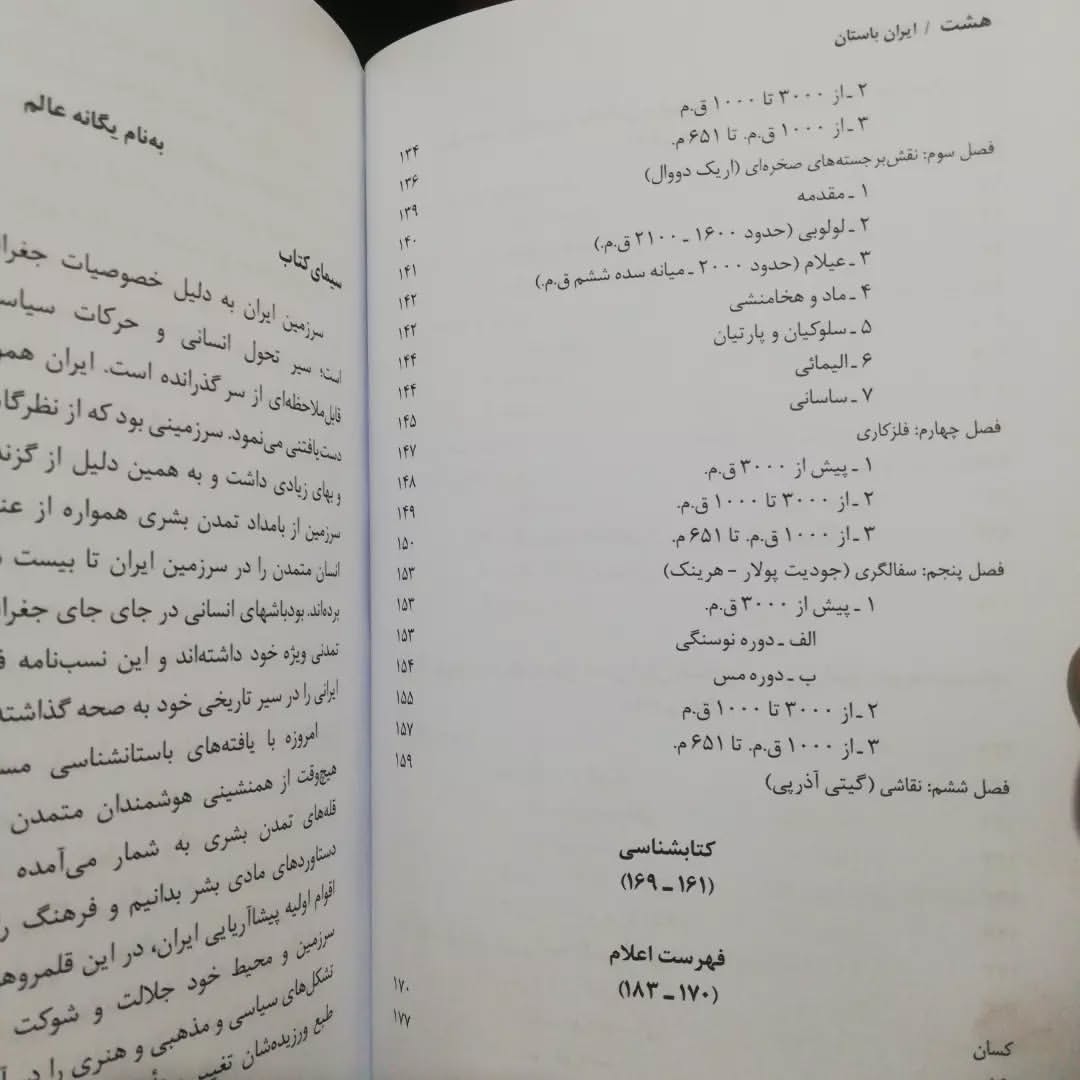 هشت / ایران باستان
۲ ـ از ۳۰۰۰ تا ۱۰۰۰ ق.م ۱۳۴
۳ ـ از ۱۰۰۰ ق.م. تا ۶۵۱ م. ۱۳۶
فصل سوم: نقش‌برجسته‌های صخره‌ای (اریک دووال) ۱۳۹
۱ ـ مقدمه ۱۴۰
۲ ـ لولوبی (حدود ۱۶۰۰ ـ ۲۱۰۰ ق.م.) ۱۴۱
۳ ـ عیلام (حدود ۲۰۰۰ ـ میانه سده ششم ق.م.) ۱۴۲
۴ ـ ماد و هخامنشی ۱۴۲
۵ ـ سلوکیان و پارتیان ۱۴۴
۶ ـ الیمائی ۱۴۴
۷ ـ ساسانی ۱۴۵
فصل چهارم: فلزکاری ۱۴۷
۱ ـ پیش از ۳۰۰۰ ق.م. ۱۴۸
۲ ـ از ۳۰۰۰ تا ۱۰۰۰ ق.م. ۱۴۹
۳ ـ از ۱۰۰۰ ق.م. تا ۶۵۱ م. ۱۵۰
فصل پنجم: سفالگری (جودیت پولار - هرینک) ۱۵۳
۱ ـ پیش از ۳۰۰۰ ق.م. ۱۵۳
الف ـ دوره نوسنگی ۱۵۳
ب ـ دوره مس ۱۵۴
۲ ـ از ۳۰۰۰ تا ۱۰۰۰ ق.م ۱۵۵
۳ ـ از ۱۰۰۰ ق.م. تا ۶۵۱ م. ۱۵۷
فصل ششم: نقاشی (گیتی آذرپی) ۱۵۹
کتابشناسی
(۱۶۱ ـ ۱۶۹)
فهرست اعلام
(۱۷۰ ـ ۱۸۳)
کسان ۱۷۰
۱۷۷
به‌نام یگانه عالم
سیمای کتاب
سرزمین ایران به دلیل خصوصیات
است؛ سیر تحول انسانی و حرکات
قابل‌ملاحظه‌ای از سر گذرانده است. ایران
دست‌یافتنی می‌نمود. سرزمینی بود که از
و بهای زیادی داشت و به همین دلیل از
سرزمین از بامداد تمدن بشری همواره از
انسان متمدن را در سرزمین ایران تا بیست
برده‌اند. بودباشهای انسانی در جای جای
تمدنی ویژه خود داشته‌اند و این نسب‌نامه
ایرانی را در سیر تاریخی خود به صحه
امروزه با یافته‌های باستانشناسی
هیچ‌وقت از همنشینی هوشمندان متمدن
قله‌های تمدن بشری به شمار می‌آمده
دستاوردهای مادی بشر بدانیم و فرهنگ
اقوام اولیه پیشاآریایی ایران، در این
سرزمین و محیط خود جلالت و شوکت
تشکل‌های سیاسی و مذهبی و هنری را در
طبع ورزیده‌شان